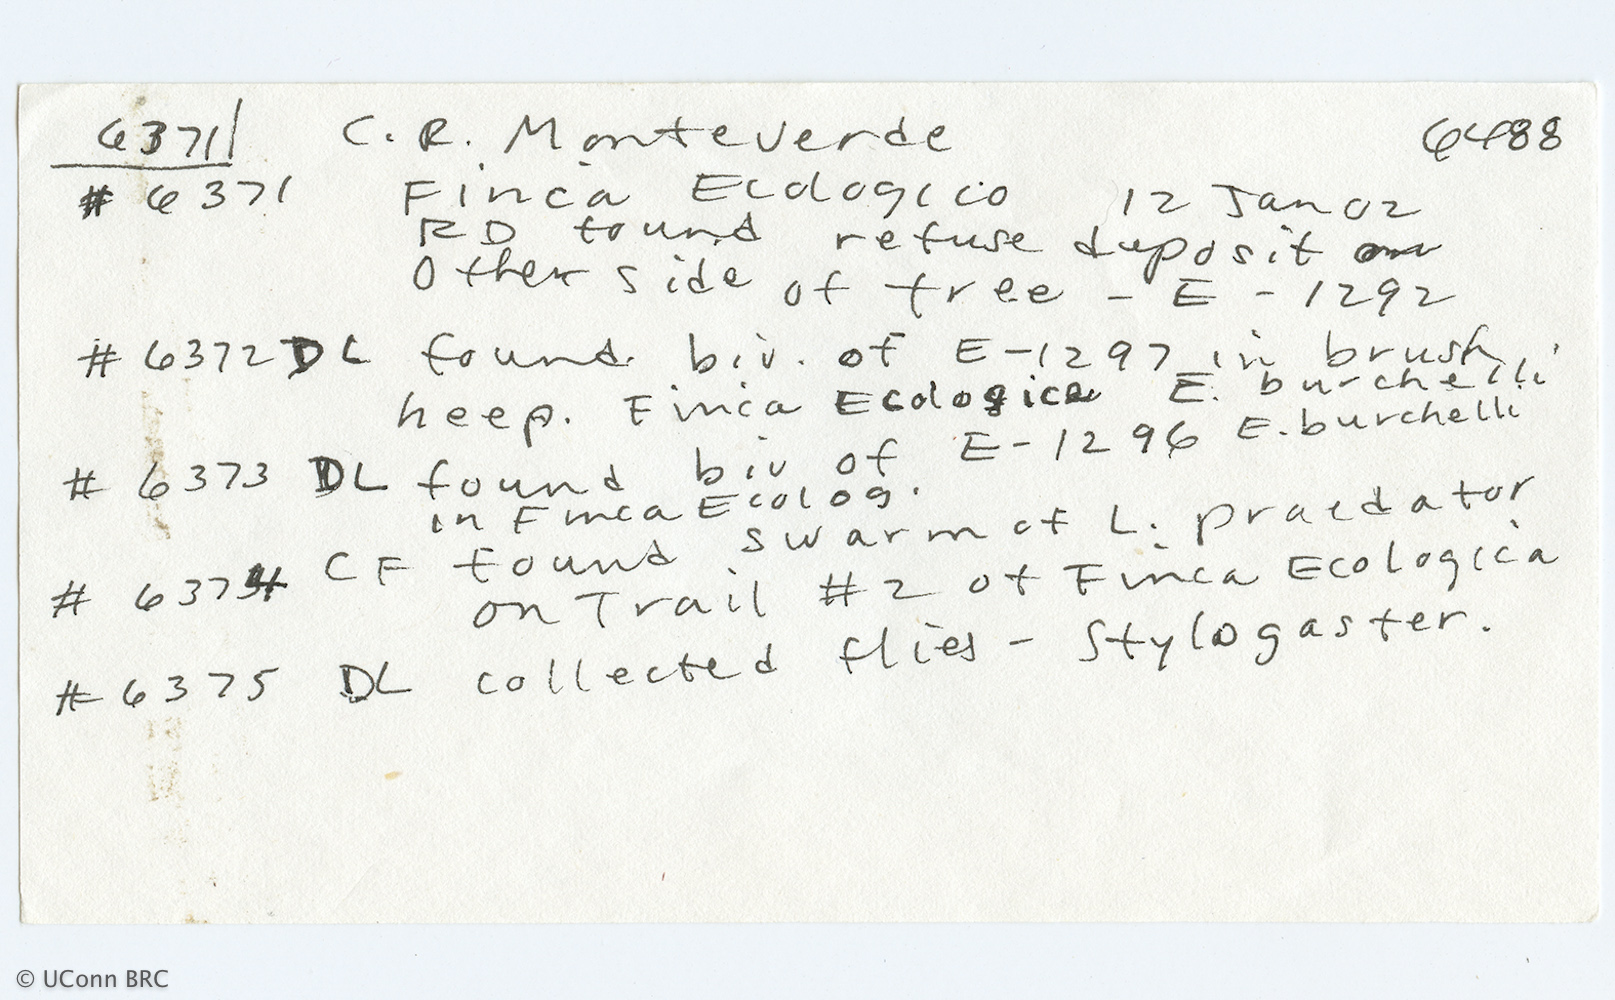 6371 C. R. Monteverde 6488
# 6371 Finca Ecologico 12 Jan 02
RD found refuse deposit on
other side of tree - E - 1292
# 6372 DL found biv. of E-1297 in brush
heep. Finca Ecologica E. burchelli
# 6373 DL found biv of E-1296 E. burchelli
in Finca Ecolog.
# 6374 CF found swarm of L. praedator
on Trail #2 of Finca Ecologica
# 6375 DL collected flies - Stylogaster.
© UConn BRC